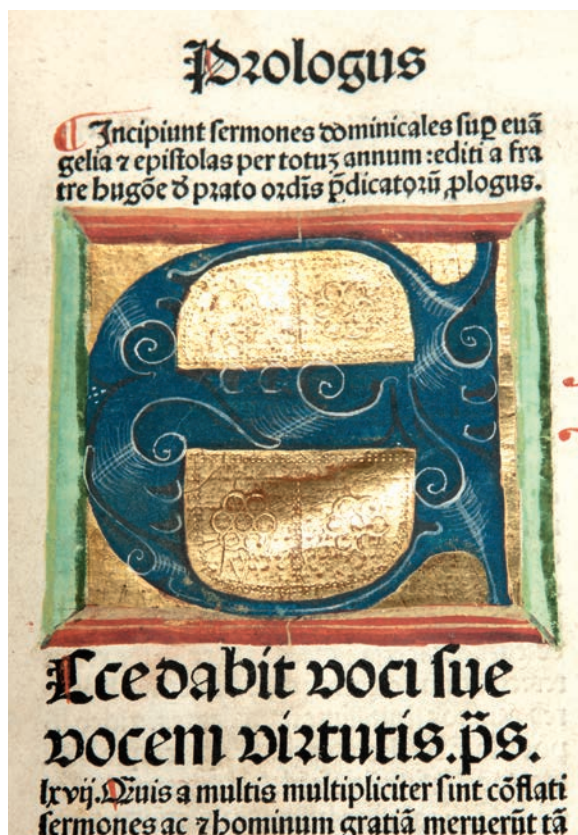 Prologus
¶ Incipiunt sermones dominicales suꝑ euā
gelia ⁊ epistolas per totuʒ annum :editi a fra
tre hugōe ð prato ordīs p̄dicatoꝝū ꝓlogus.
E
Ecce dabit voci sue
vocem virtutis.p̄s.
lxvij. Quis a multis multipliciter sint cōflati
sermones ac ⁊ hominum gratiā meruerūt tā